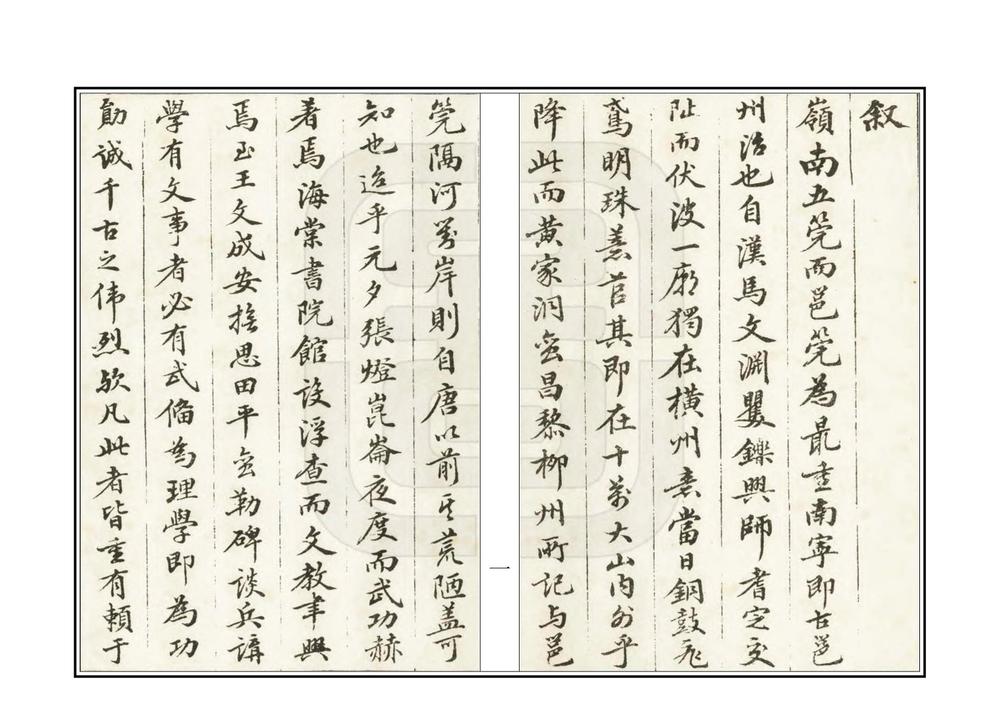 叙
嶺南五筦而邕筦為最重南寧即古邕
州治也自漢馬文淵矍鑠興師耆定交
阯而伏波一廟獨在橫州意當日銅鼓飛
鳶明珠薏苡其即在十萬大山内外乎
降此而黃家洞蛮昌黎柳州所記与邕
一
筦隔河對岸則自唐以前其荒陋盖可
知也迨乎元夕張燈崑崙夜度而武功赫
著焉海棠書院館設浮查而文教聿興
焉至王文成安撫思田平蛮勒碑談兵講
學有文事者必有武俻為理學即為功
勛誠千古之偉烈歟凡此者皆重有賴于